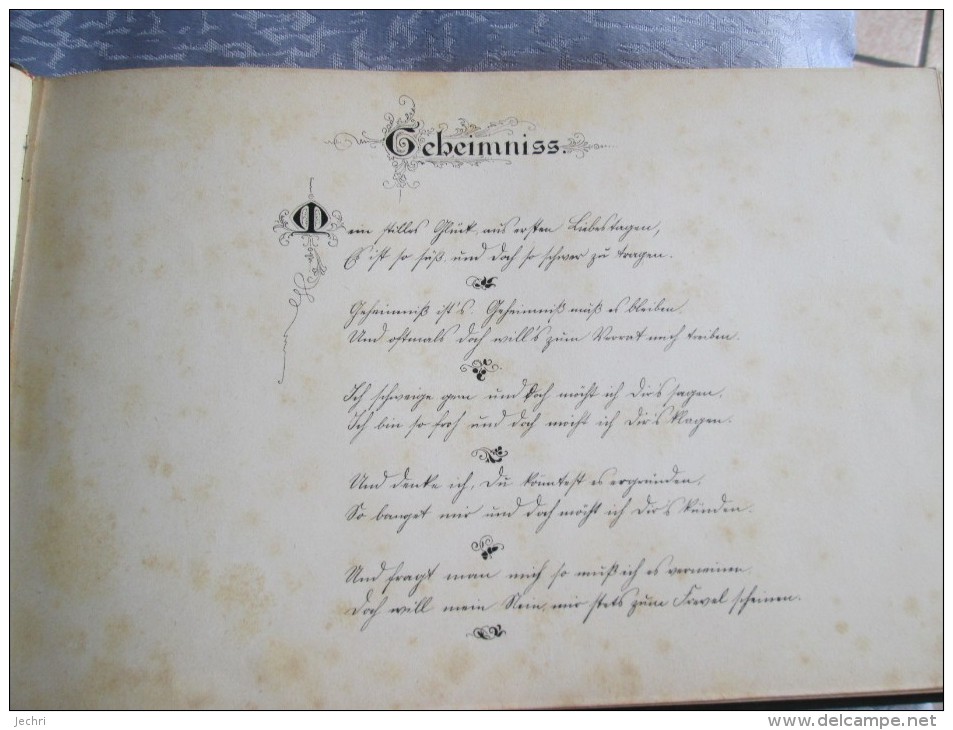 Geheimniss.
Mein stilles Glück, aus ersten Liebestagen,
Es ist so süß, und doch so schwer zu tragen.
Geheimniß ist's. Geheimniß muß es bleiben.
Und oftmals doch will's zum Verrat mich treiben.
Ich schweige gern und doch möcht ich Dir's sagen,
Ich bin so froh und doch möcht ich Dir's klagen.
Und denke ich, Du könntest es ergründen,
So banget mir und doch möcht ich Dir's künden.
Und fragt man mich so muß ich es verneinen.
Doch will mein Nein, mir stets zum Frevel scheinen.
jechri
www.delcampe.net